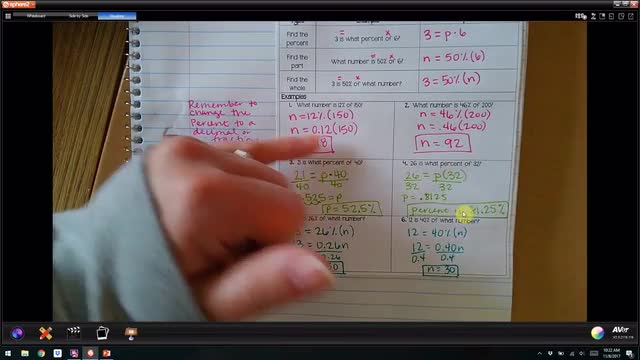 sphere2
Whiteboard
Side by Side
Overlay
Find the
percent
3 is what percent of 6?
3 = p · 6
Find the
part
What number is 50% of 6?
n = 50% (6)
Find the
whole
3 is 50% of what number?
3 = 50% (n)
Examples
Remember to
change the
Percent to a
decimal or
1. What number is 12% of 150?
n = 12% (150)
n = 0.12 (150)
2. What number is 46% of 200?
n = 46% (200)
n = .46 (200)
n = 92
is what percent of 40?
21 = p · 40
40 40
.525 = p
p = 52.5%
4. 26 is what percent of 32?
26 = p(32)
32 32
p = .8125
percent
.25%
of what number?
= 26% (n)
= 0.26n
6. 12 is 40% of what number?
12 = 40% (n)
12 = 0.40n
0.4 0.4
n = 30
AVer
10:22 AM